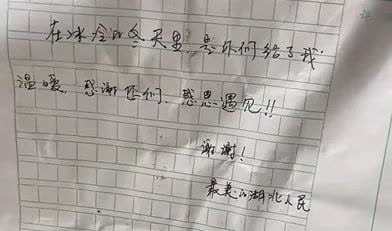 在冰冷的冬天里,是你们给了我
温暖,感谢你们,感恩遇见!!
谢谢!
最美的湖北人民